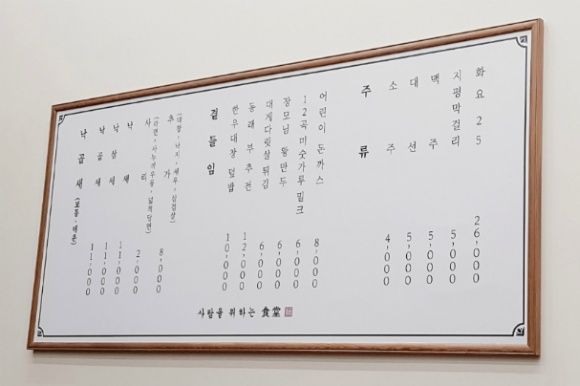 낙곱새 (보통·매운)
낙곱새 11,000
낙삼새 11,000
낙새 11,000
사리 (라면·사누끼우동·넓적당면) 2,000
추가 (대창·낙지·새우·삼겹살) 8,000
곁들임
한우대창 덮밥 10,000
동래부추전 12,000
대게다릿살튀김 6,000
장모님 왕만두 6,000
12곡미숫가루밀크 6,000
어린이 돈까스 8,000
주류
소주 4,000
대선 5,000
맥주 5,000
지평막걸리 5,000
화요25 26,000
사람을 위하는 食堂